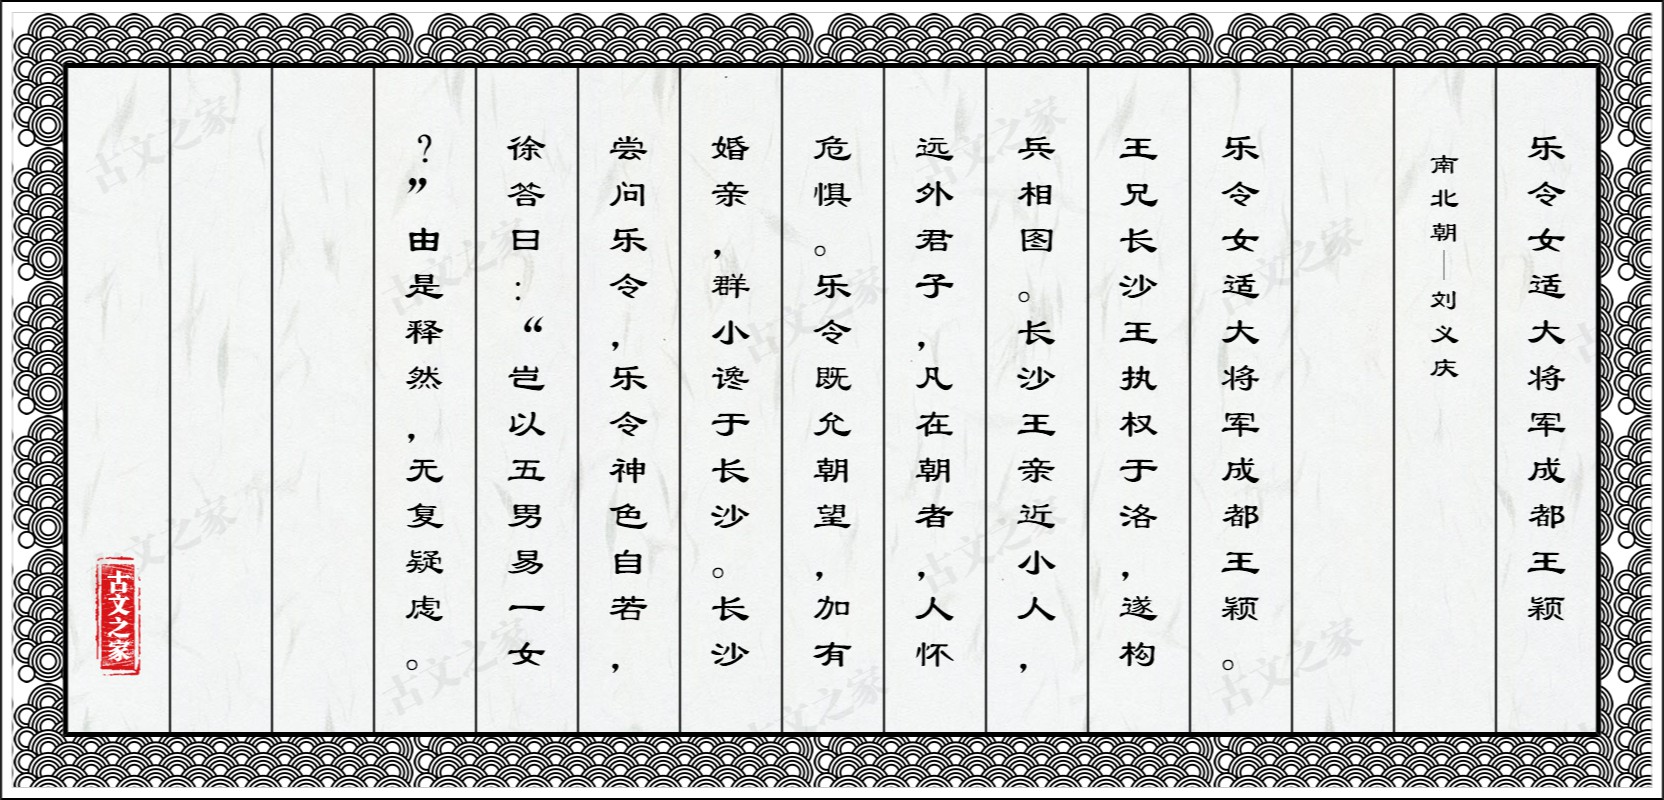 乐令女适大将军成都王颖
南北朝—刘义庆
乐令女适大将军成都王颖。
王兄长沙王执权于洛，遂构
兵相图。长沙王亲近小人，
远外君子，凡在朝者，人怀
危惧。乐令既允朝望，加有
婚亲，群小谗于长沙。长沙
尝问乐令，乐令神色自若，
徐答曰：“岂以五男易一女
？”由是释然，无复疑虑。
古文之家